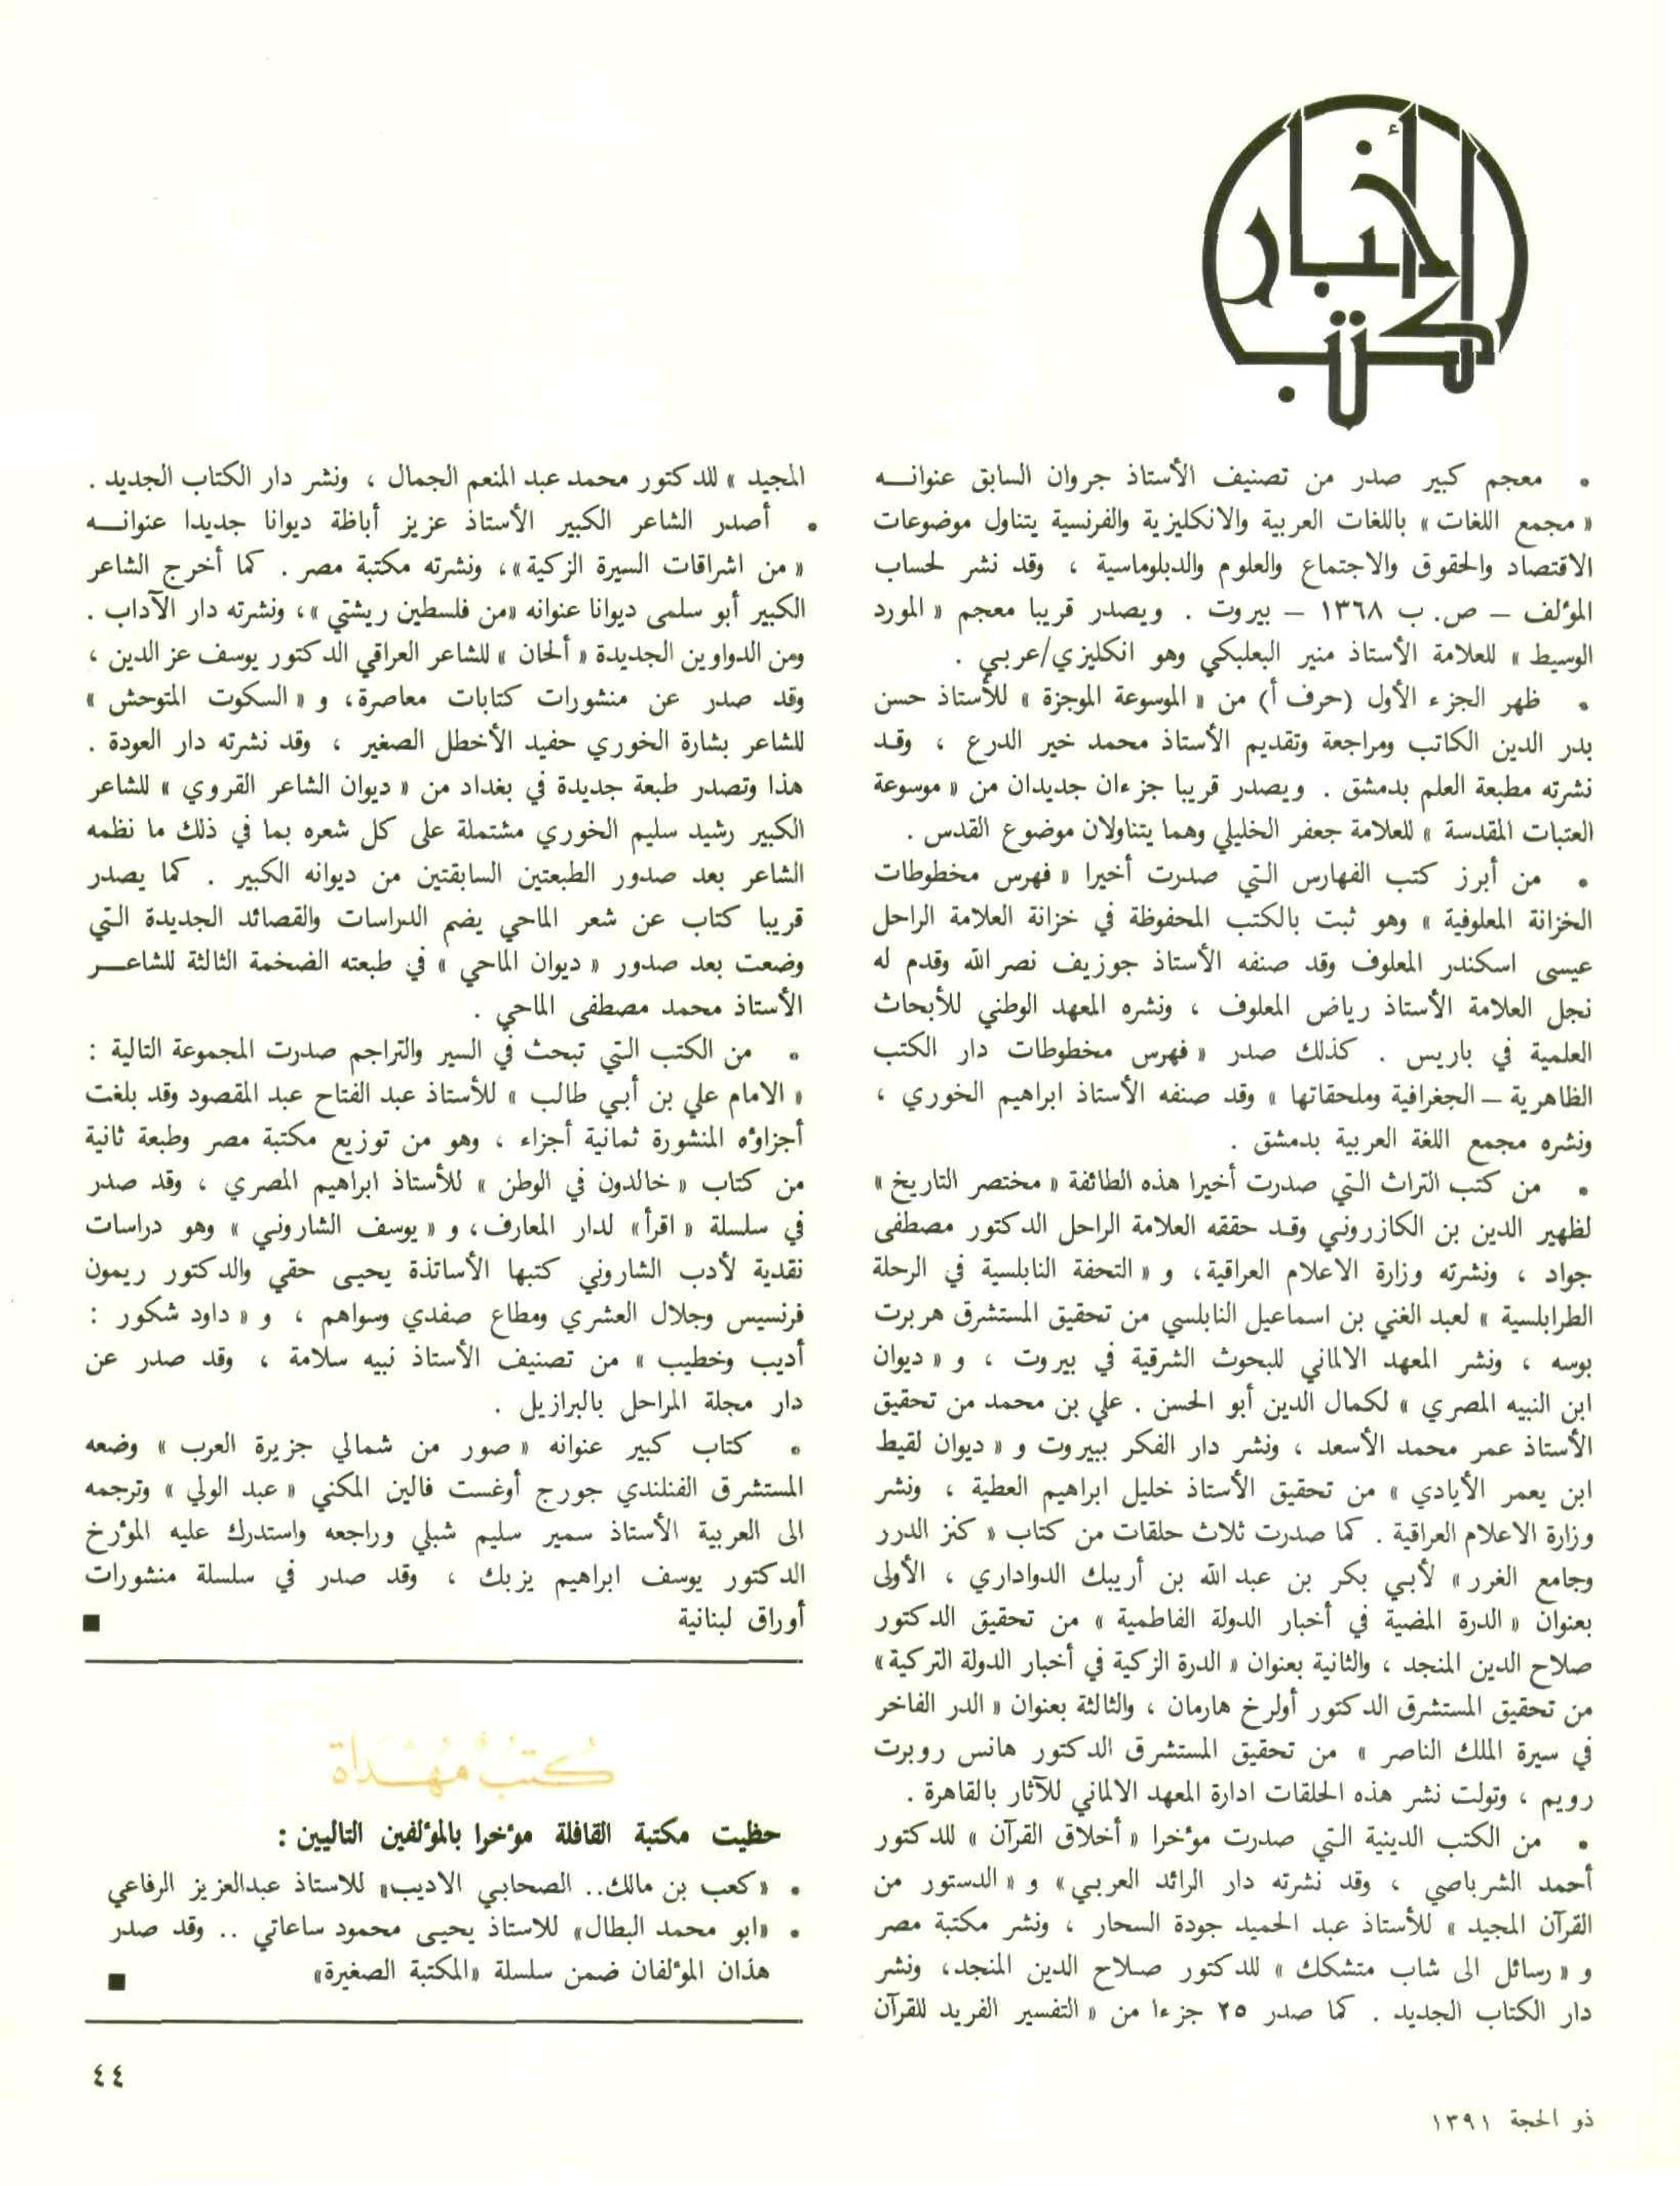 أخبار
الكتب
• معجم كبير صدر من تصنيف الأستاذ جروان السابق عنوانــه
« مجمع اللغات » باللغات العربية والانكليزية والفرنسية يتناول موضوعات
الاقتصاد والحقوق والاجتماع والعلوم والدبلوماسية ، وقد نشر لحساب
المؤلف – ص. ب ١٣٦٨ – بيروت . ويصدر قريبا معجم « المورد
الوسيط » للعلامة الأستاذ منير البعلبكي وهو انكليزي/عربي .
• ظهر الجزء الأول (حرف أ) من « الموسوعة الموجزة » للأستاذ حسن
بدر الدين الكاتب ومراجعة وتقديم الأستاذ محمد خير الدرع ، وقد
نشرته مطبعة العلم بدمشق . ويصدر قريبا جزءان جديدان من « موسوعة
العتبات المقدسة » للعلامة جعفر الخليلي وهما يتناولان موضوع القدس .
• من أبرز كتب الفهارس التي صدرت أخيرا « فهرس مخطوطات
الخزانة المعلوفية » وهو ثبت بالكتب المحفوظة في خزانة العلامة الراحل
عيسى اسكندر المعلوف وقد صنفه الأستاذ جوزيف نصر الله وقدم له
نجل العلامة الأستاذ رياض المعلوف ، ونشره المعهد الوطني للأبحاث
العلمية في باريس . كذلك صدر « فهرس مخطوطات دار الكتب
الظاهرية – الجغرافية وملحقاتها » وقد صنفه الأستاذ ابراهيم الخوري ،
ونشره مجمع اللغة العربية بدمشق .
• من كتب التراث التي صدرت أخيرا هذه الطائفة « مختصر التاريخ »
لظهير الدين بن الكازروني وقد حققه العلامة الراحل الدكتور مصطفى
جواد ، ونشرته وزارة الاعلام العراقية، و « التحفة النابلسية في الرحلة
الطرابلسية » لعبد الغني بن اسماعيل النابلسي من تحقيق المستشرق هربرت
بوسه ، ونشر المعهد الالماني للبحوث الشرقية في بيروت ، و « ديوان
ابن النبيه المصري » لكمال الدين أبو الحسن . علي بن محمد من تحقيق
الأستاذ عمر محمد الأسعد ، ونشر دار الفكر ببيروت و « ديوان لقيط
ابن يعمر الأيادي » من تحقيق الأستاذ خليل ابراهيم العطية ، ونشر
وزارة الاعلام العراقية . كما صدرت ثلاث حلقات من كتاب « كنز الدرر
وجامع الغرر » لأبي بكر بن عبد الله بن أريبك الدواداري ، الأولى
بعنوان « الدرة المضية في أخبار الدولة الفاطمية » من تحقيق الدكتور
صلاح الدين المنجد ، والثانية بعنوان « الدرة الزكية في أخبار الدولة التركية »
من تحقيق المستشرق الدكتور أولرخ هارمان ، والثالثة بعنوان « الدر الفاخر
في سيرة الملك الناصر » من تحقيق المستشرق الدكتور هانس روبرت
رويم ، وتولت نشر هذه الحلقات ادارة المعهد الالماني للآثار بالقاهرة .
• من الكتب الدينية التي صدرت مؤخرا « أخلاق القرآن » للدكتور
أحمد الشرباصي ، وقد نشرته دار الرائد العربي» و « الدستور من
القرآن المجيد » للأستاذ عبد الحميد جودة السحار ، ونشر مكتبة مصر
و « رسائل الى شاب متشكك » للدكتور صلاح الدين المنجد، ونشر
دار الكتاب الجديد . كما صدر ٢٥ جزءا من « التفسير الفريد للقرآن
المجيد » للدكتور محمد عبد المنعم الجمال ، ونشر دار الكتاب الجديد .
• أصدر الشاعر الكبير الأستاذ عزيز أباظة ديوانا جديدا عنوانــه
« من اشراقات السيرة الزكية»، ونشرته مكتبة مصر . كما أخرج الشاعر
الكبير أبو سلمى ديوانا عنوانه «من فلسطين ريشتي »، ونشرته دار الآداب .
ومن الدواوين الجديدة « ألحان » للشاعر العراقي الدكتور يوسف عز الدين ،
وقد صدر عن منشورات كتابات معاصرة، و « السكوت المتوحش »
للشاعر بشارة الخوري حفيد الأخطل الصغير ، وقد نشرته دار العودة .
هذا وتصدر طبعة جديدة في بغداد من « ديوان الشاعر القروي » للشاعر
الكبير رشيد سليم الخوري مشتملة على كل شعره بما في ذلك ما نظمه
الشاعر بعد صدور الطبعتين السابقتين من ديوانه الكبير . كما يصدر
قريبا كتاب عن شعر الماحي يضم الدراسات والقصائد الجديدة التي
وضعت بعد صدور « ديوان الماحي » في طبعته الضخمة الثالثة للشاعــر
الأستاذ محمد مصطفى الماحي .
• من الكتب التي تبحث في السير والتراجم صدرت المجموعة التالية :
« الامام علي بن أبي طالب » للأستاذ عبد الفتاح عبد المقصود وقد بلغت
أجزاؤه المنشورة ثمانية أجزاء ، وهو من توزيع مكتبة مصر وطبعة ثانية
من كتاب « خالدون في الوطن » للأستاذ ابراهيم المصري ، وقد صدر
في سلسلة « اقرأ» لدار المعارف، و « يوسف الشاروني » وهو دراسات
نقدية لأدب الشاروني كتبها الأساتذة يحيى حقي والدكتور ريمون
فرنسيس وجلال العشري ومطاع صفدي وسواهم ، و « داود شكور :
أديب وخطيب » من تصنيف الأستاذ نبيه سلامة ، وقد صدر عن
دار مجلة المراحل بالبرازيل .
• كتاب كبير عنوانه « صور من شمالي جزيرة العرب » وضعه
المستشرق الفنلندي جورج أوغست فالين المكني « عبد الولي » وترجمه
الى العربية الأستاذ سمير سليم شبلي وراجعه واستدرك عليه المؤرخ
الدكتور يوسف ابراهيم يزبك ، وقد صدر في سلسلة منشورات
أوراق لبنانية ■
كُتُبٌ مُهْدَاة
حظيت مكتبة القافلة مؤخرا بالمؤلفين التاليين :
• «كعب بن مالك.. الصحابي الاديب» للاستاذ عبدالعزيز الرفاعي
• «ابو محمد البطال» للاستاذ يحيى محمود ساعاتي .. وقد صدر
هذان المؤلفان ضمن سلسلة «المكتبة الصغيرة» ■
٤٤
ذو الحجة ١٣٩١